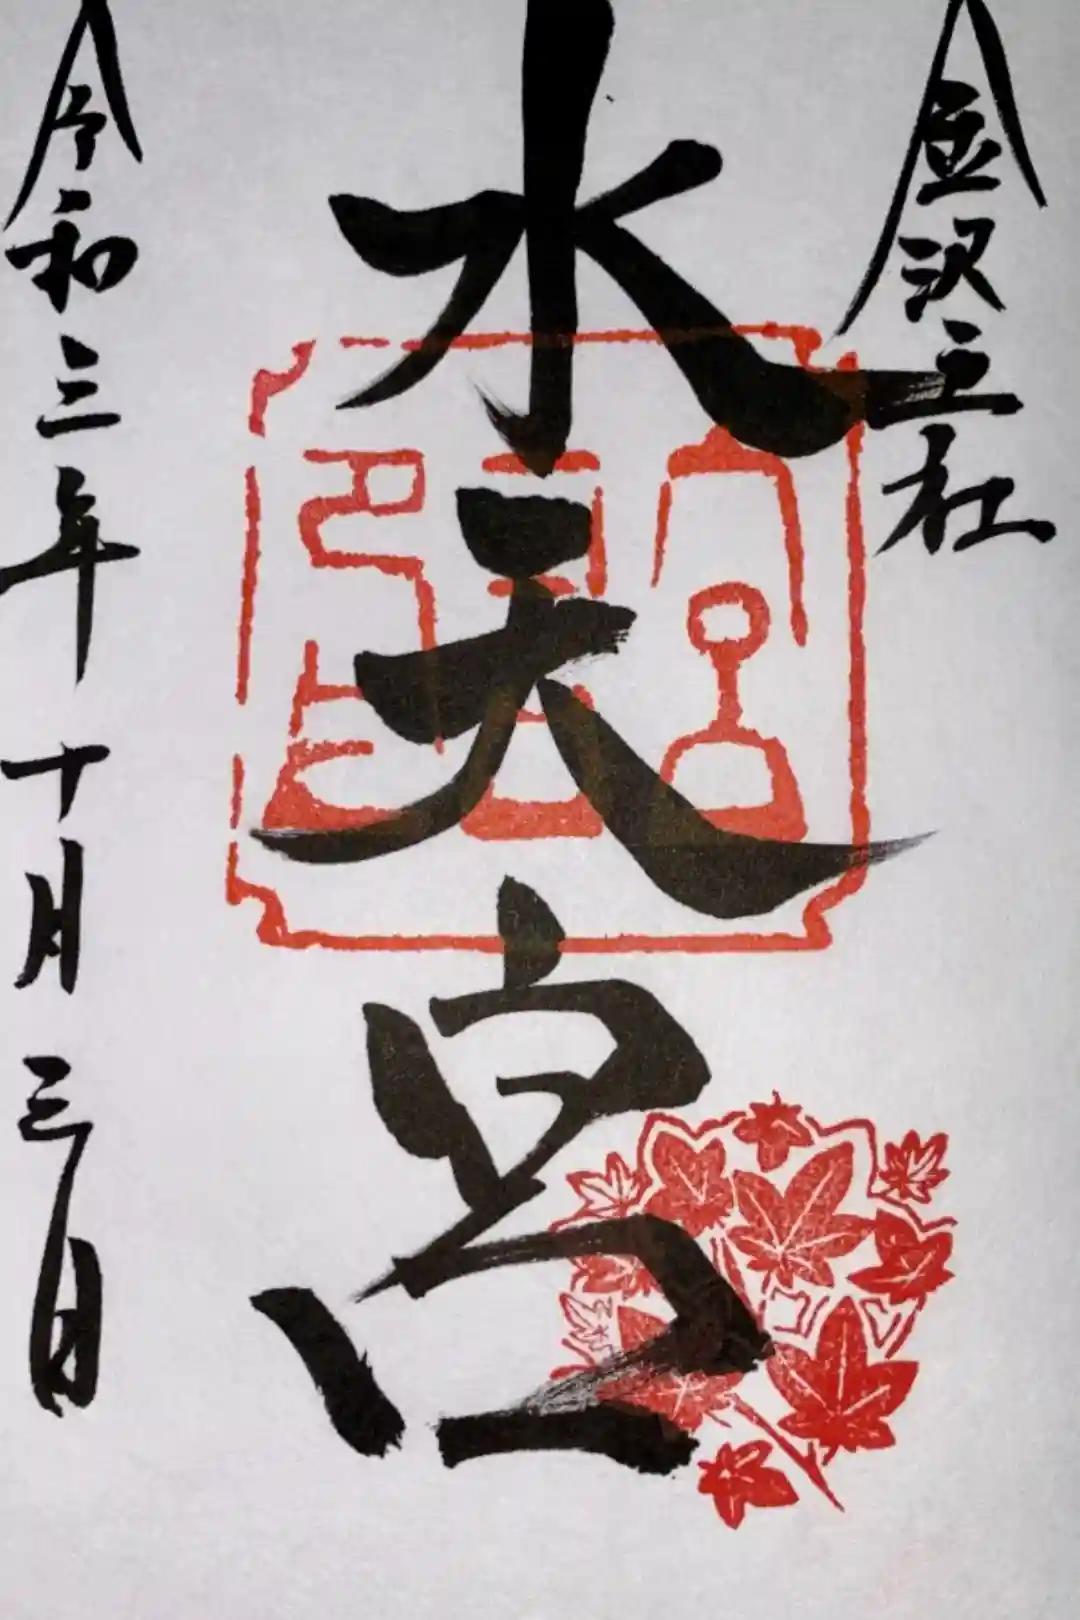 金沢三社
水天宮
令和三年十月三日